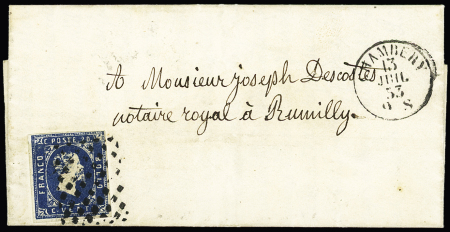 CHAMBERY
13
JUIL
53
6 S
A Monsieur joseph Descostes
notaire royal à Rumilly.
C. POSTE 20
FRANCO
BOLLO
C. VENTI